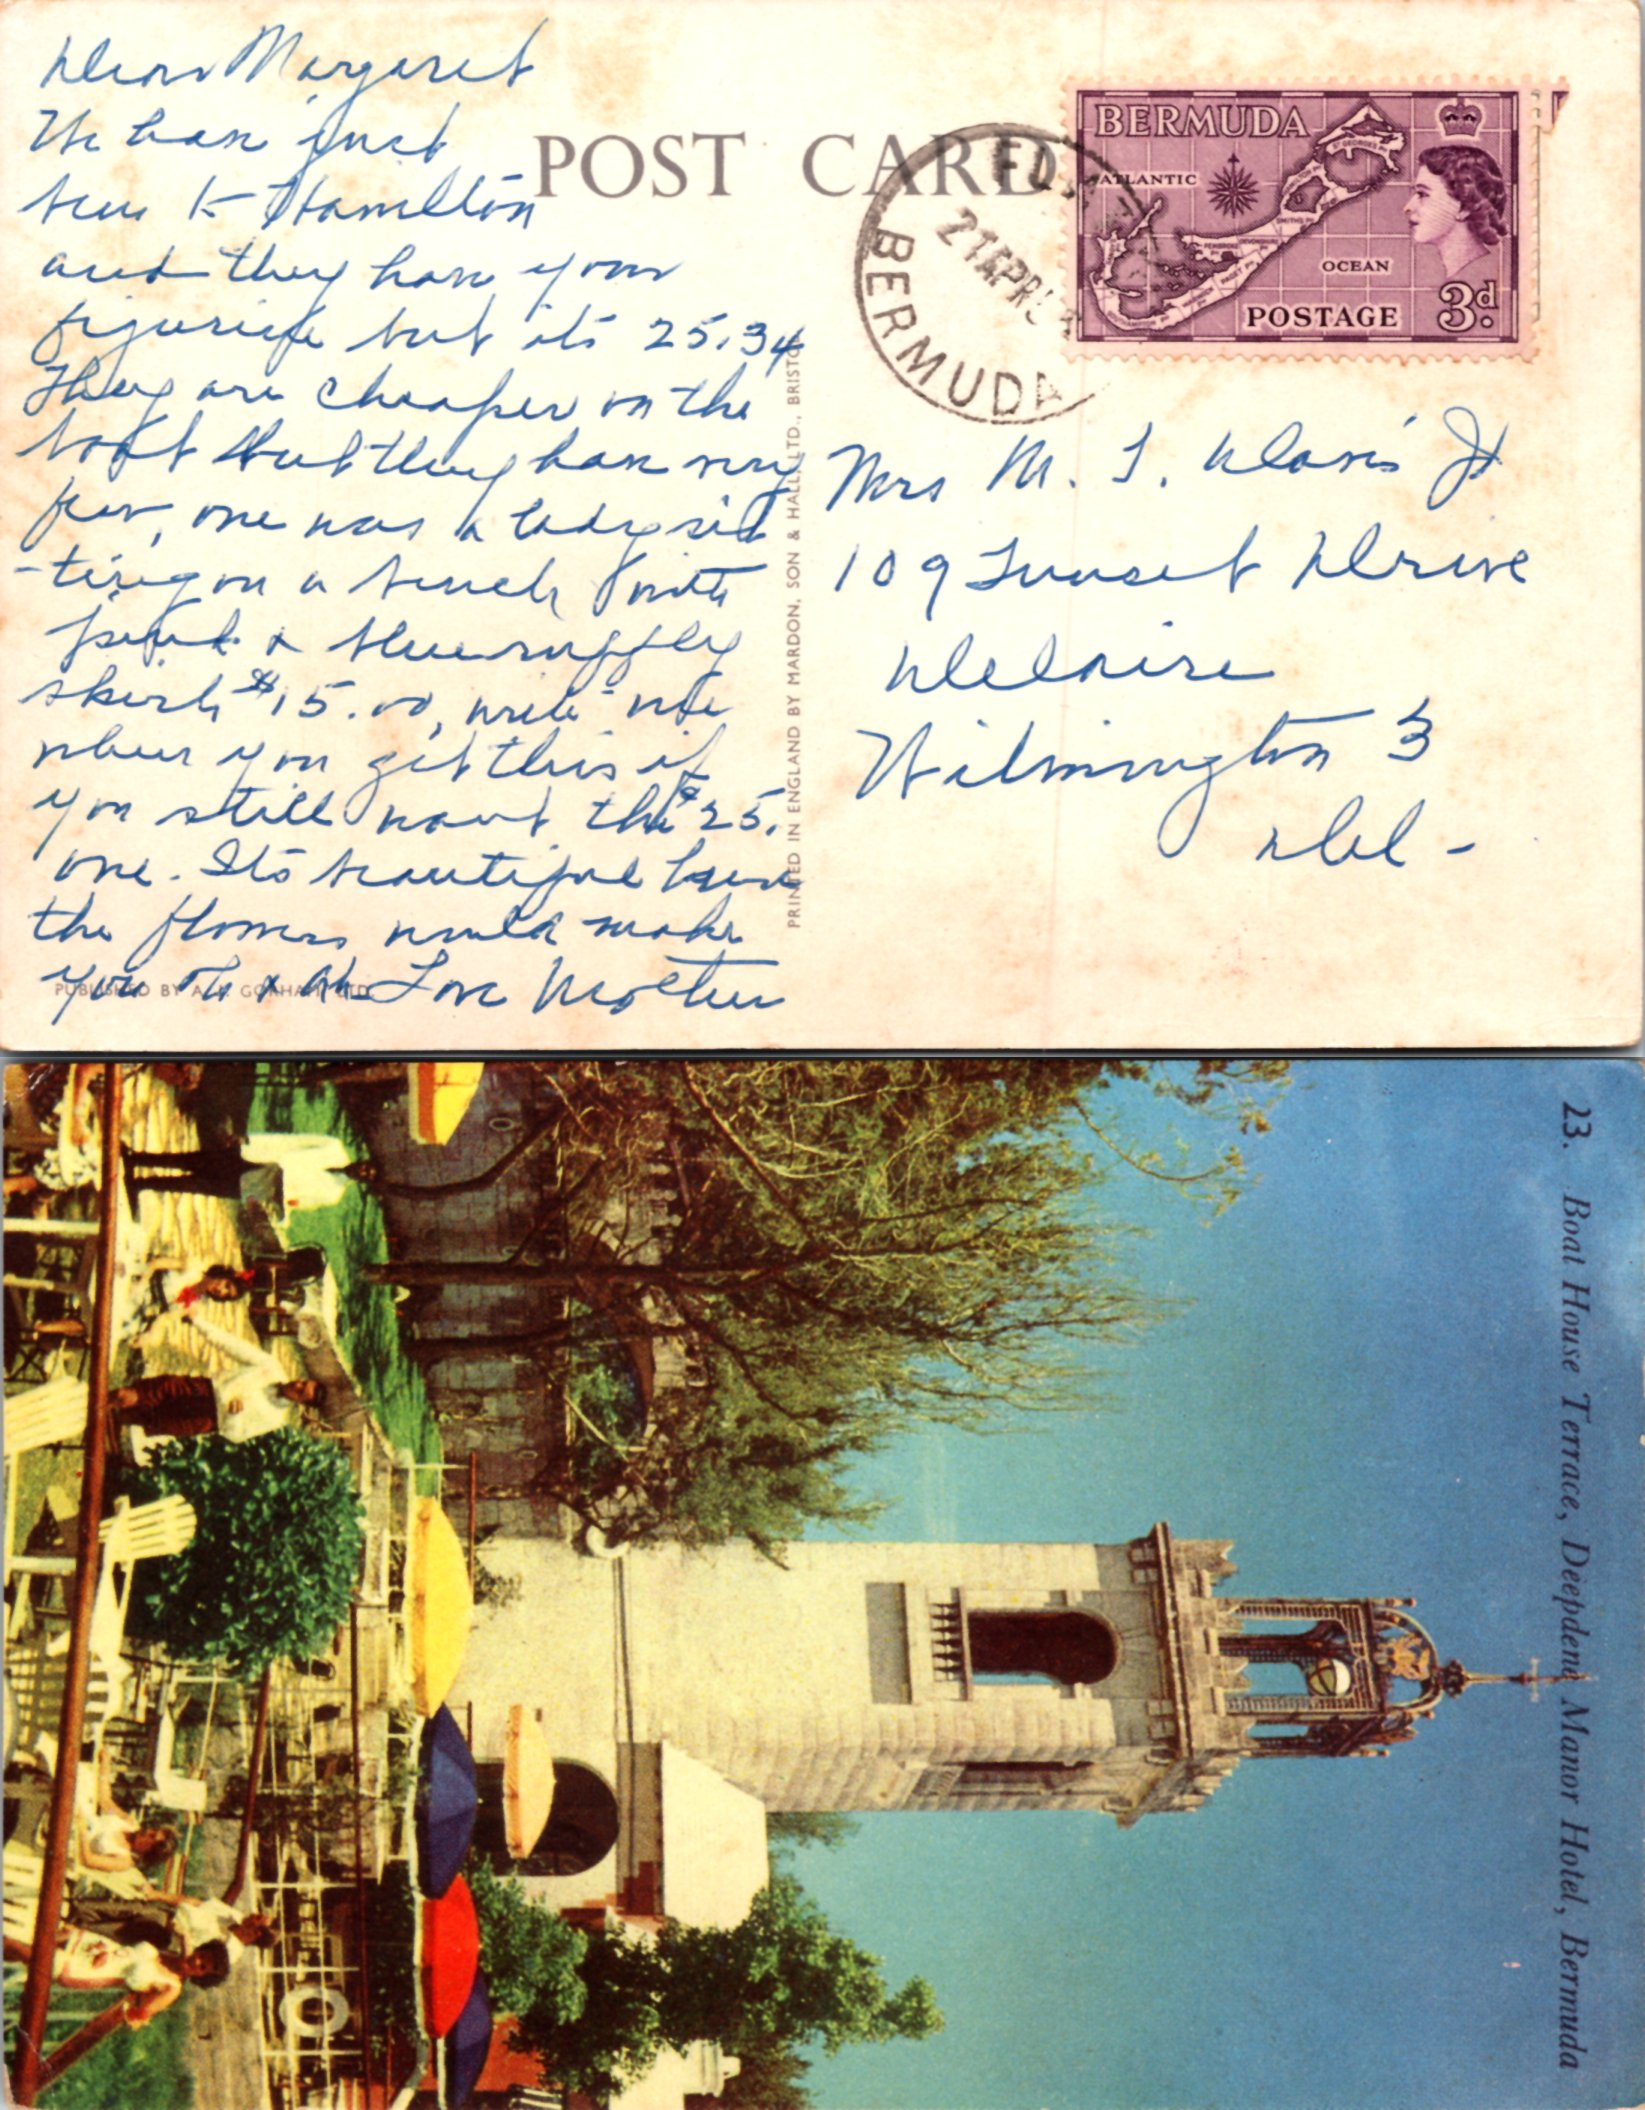 Dear Margaret
We have just
been to Hamilton
and they have your
figurine but its 25.34
They are cheaper on the
boat but they have very
few, one was a lady sit
-ting on a bench with
pink & blue ruffly
skirt, $15.00, write me
when you get this if
you still want the $25.
one. Its beautiful here
the flowers would make
you Oh & Ah Love Mother
PUBLISHED BY A. J. GORHAM LTD.
POST CARD
PRINTED IN ENGLAND BY MARDON, SON & HALL, LTD., BRISTOL
21 APR 5
BERMUDA
BERMUDA
ATLANTIC
OCEAN
POSTAGE 3d.
Mrs M. I. Davis Jr
109 Sunset Drive
Delaire
Wilmington 3
Del -
23. Boat House Terrace, Deepdene Manor Hotel, Bermuda